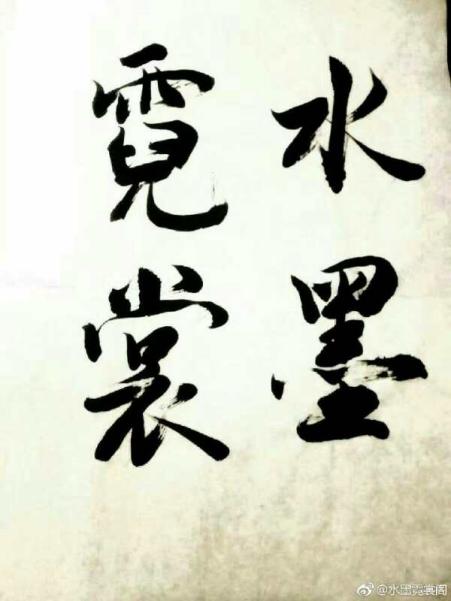 水墨
霓裳
@水墨霓裳阁